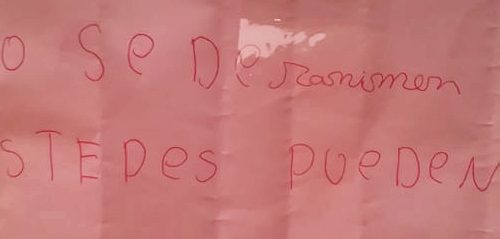 O Se De sanismen
STEDes pueDeN